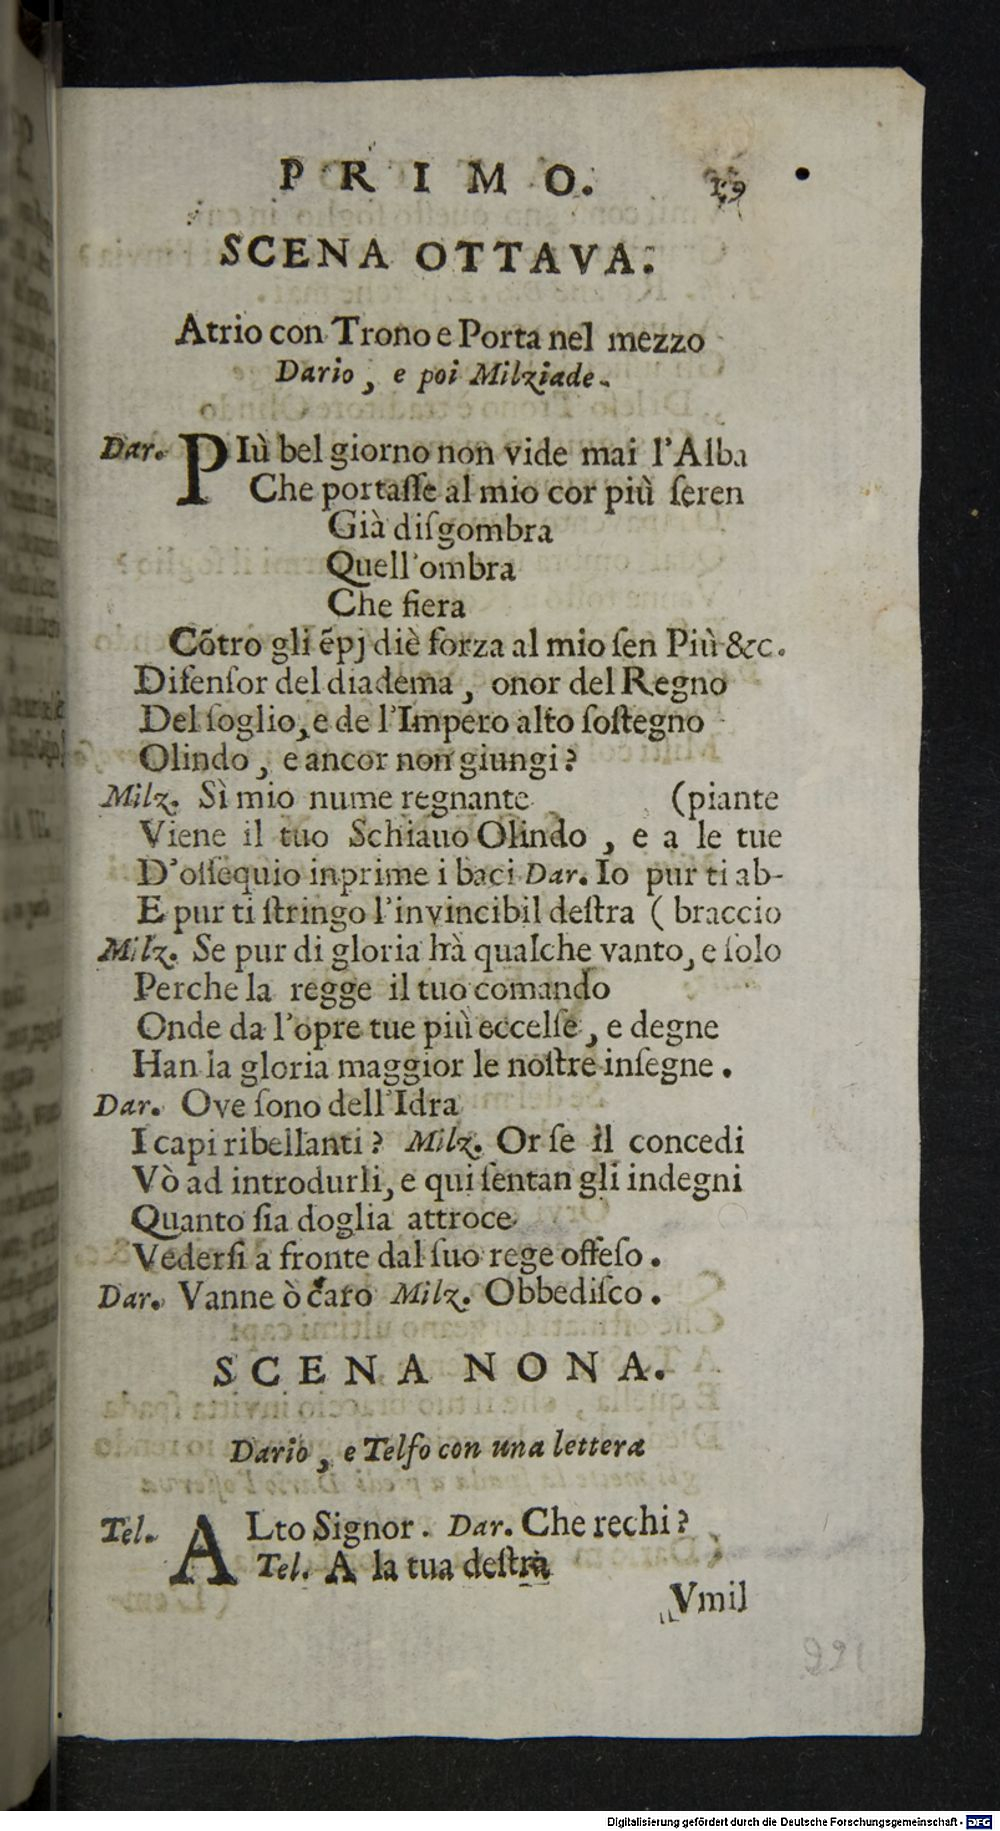 PRIMO. 19
SCENA OTTAVA.
Atrio con Trono e Porta nel mezzo
Dario, e poi Milziade.
Dar. PIù bel giorno non vide mai l'Alba
Che portaſſe al mio cor più ſeren
Già diſgombra
Quell'ombra
Che fiera
Cõtro gli ẽpj diè forza al mio ſen Più &c.
Difenſor del diadema, onor del Regno
Del ſoglio, e de l'Impero alto ſoſtegno
Olindo, e ancor non giungi?
Milz. Sì mio nume regnante (piante
Viene il tuo Schiauo Olindo, e a le tue
D'oſſequio inprime i baci Dar. Io pur ti ab-
E pur ti ſtringo l'invincibil deſtra (braccio
Milz. Se pur di gloria hà qualche vanto, e ſolo
Perche la regge il tuo comando
Onde da l'opre tue più eccelſe, e degne
Han la gloria maggior le noſtre inſegne.
Dar. Ove ſono dell'Idra
I capi ribellanti? Milz. Or ſe il concedi
Vò ad introdurli, e qui ſentan gli indegni
Quanto ſia doglia attroce
Vederſi a fronte dal ſuo rege offeſo.
Dar. Vanne ò caro Milz. Obbediſco.
SCENA NONA.
Dario, e Telfo con una lettera
Tel. ALto Signor. Dar. Che rechi?
Tel. A la tua deſtra
Vmil
Digitalisierung gefördert durch die Deutsche Forschungsgemeinschaft - DFG